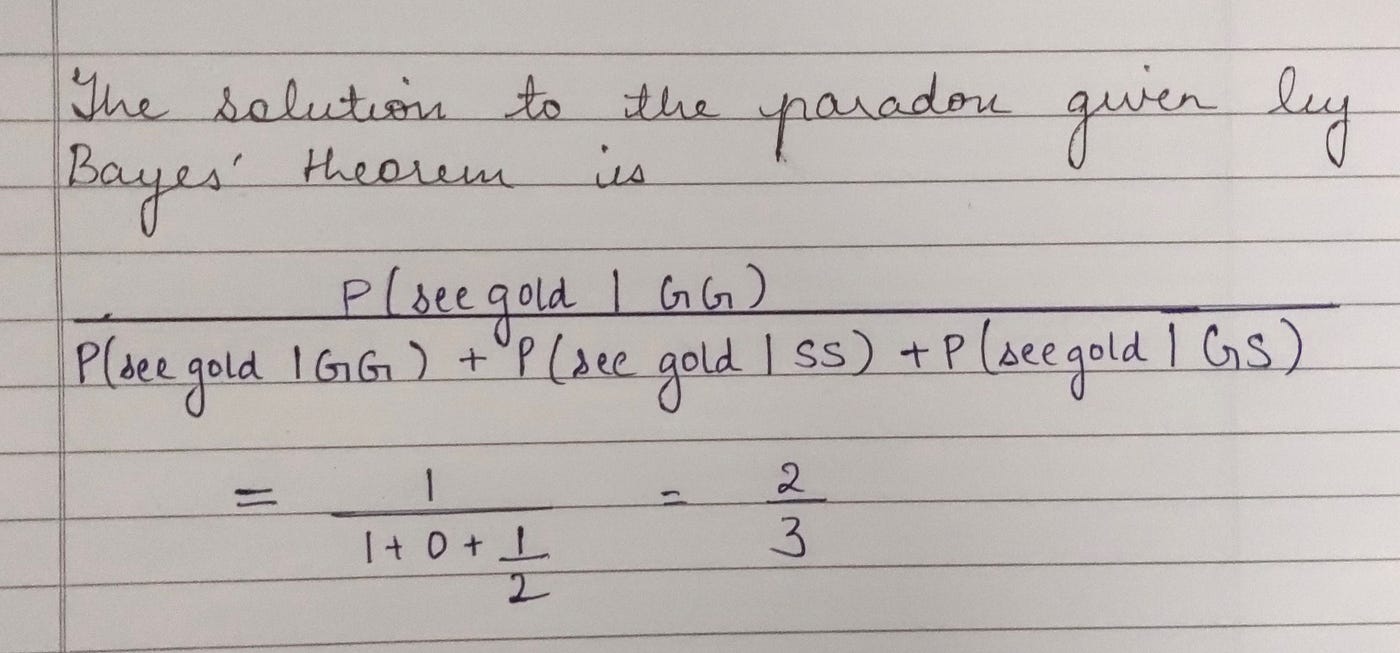 The solution to the paradox given by
Bayes' theorem is
P(see gold | GG)
P(see gold | GG) + P(see gold | SS) + P(see gold | GS)
= 1 / (1 + 0 + 1/2) = 2/3